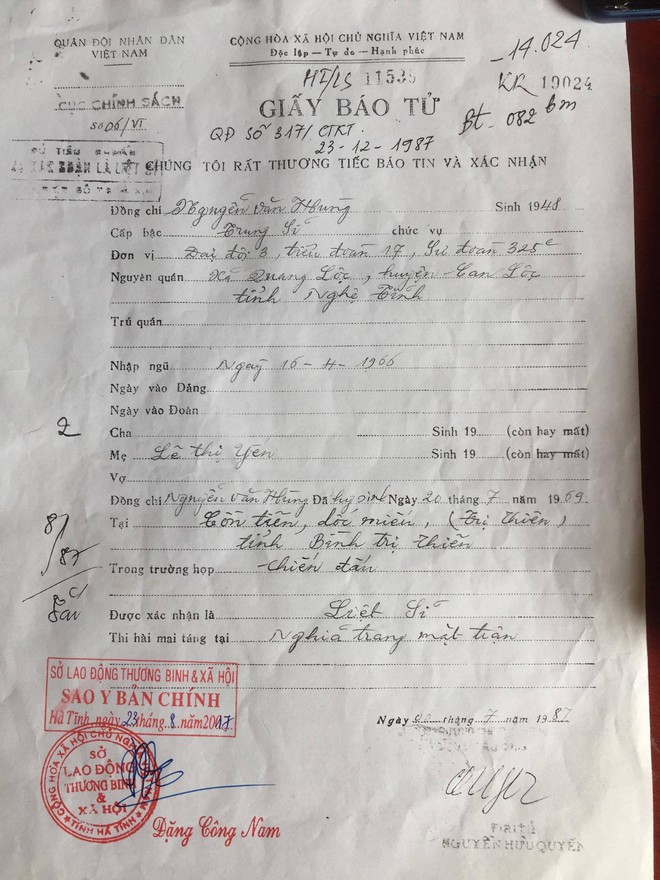 QUÂN ĐỘI NHÂN DÂN
VIỆT NAM
CỘNG HÒA XÃ HỘI CHỦ NGHĨA VIỆT NAM
Độc lập — Tự do — Hạnh phúc
-14.024
HT/LS 11535
KR 19024
CỤC CHÍNH SÁCH
Số 06/VI
GIẤY BÁO TỬ
Bt - 082 bm
QĐ SỐ 317/CTKT
23-12-1987
CHÚNG TÔI RẤT THƯƠNG TIẾC BÁO TIN VÀ XÁC NHẬN
Đồng chí Nguyễn Văn Hung Sinh 1948
Cấp bậc Trung Sĩ chức vụ
Đơn vị Đại đội 3, tiểu đoàn 17, Sư đoàn 325c
Nguyên quán Xã Quang Lộc, huyện Can Lộc
tỉnh Nghệ Tĩnh
Trú quán
Nhập ngũ Ngày 16-4-1966
Ngày vào Đảng
Ngày vào Đoàn
2
Cha Sinh 19 (còn hay mất)
Mẹ Lê thị Yen Sinh 19 (còn hay mất)
Vợ
Đồng chí Nguyễn Văn Hùng Đã hy sinh Ngày 20 tháng 7 năm 1969
81/87
Tại Cồn tiên, dốc miếu, (Trị Thiên)
tỉnh Bình trị thiên
Trong trường hợp chiến đấu
Được xác nhận là Liệt Sĩ
Thi hài mai táng tại Nghĩa trang mặt trận
SỞ LAO ĐỘNG THƯƠNG BINH & XÃ HỘI
SAO Y BẢN CHÍNH
Hà Tĩnh, ngày 23 tháng 8 năm 2017
Ngày tháng 7 năm 1987
CỘNG HÒA XÃ HỘI CHỦ NGHĨA VIỆT NAM
SỞ
LAO ĐỘNG
THƯƠNG BINH
&
XÃ HỘI
TỈNH HÀ TĨNH
Đặng Công Nam
Đại tá
NGUYỄN HỮU QUYỀN